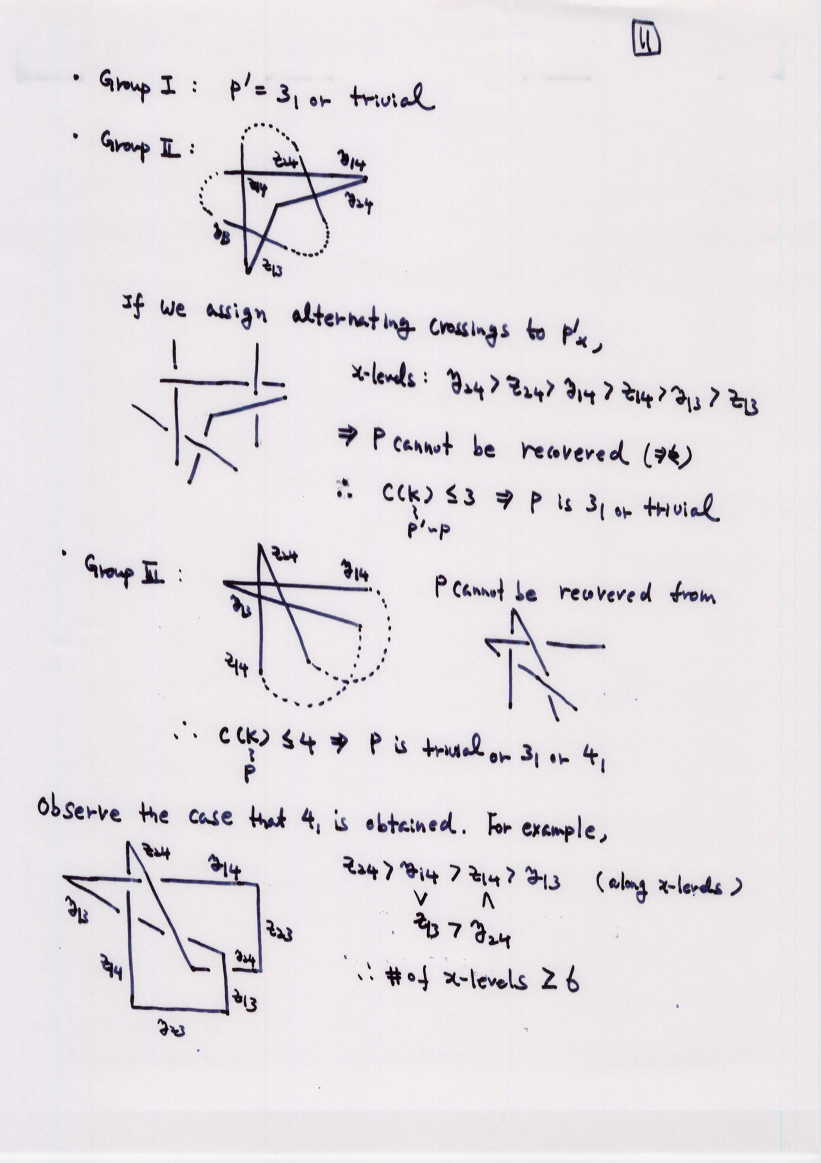 11
• Group I : P' = 3₁ or trivial
• Group II :
z24 y14
z14 y24
y13
z13
If we assign alternating crossings to P'ₓ,
x-levels : y24 > z24 > y14 > z14 > y13 > z13
⇒ P cannot be recovered
∴ C(K) ≤ 3 ⇒ P is 3₁ or trivial
P' ~ P
• Group III :
z24
y14
y13
z14
P cannot be recovered from
∴ C(K) ≤ 4 ⇒ P is trivial or 3₁ or 4₁
P
Observe the case that 4₁ is obtained. For example,
z24 y14
y13 z23
z14 y24
z13
y23
z24 > y14 > z14 > y13 (along x-levels)
∨ ∧
z13 > y24
∴ # of x-levels ≥ 6